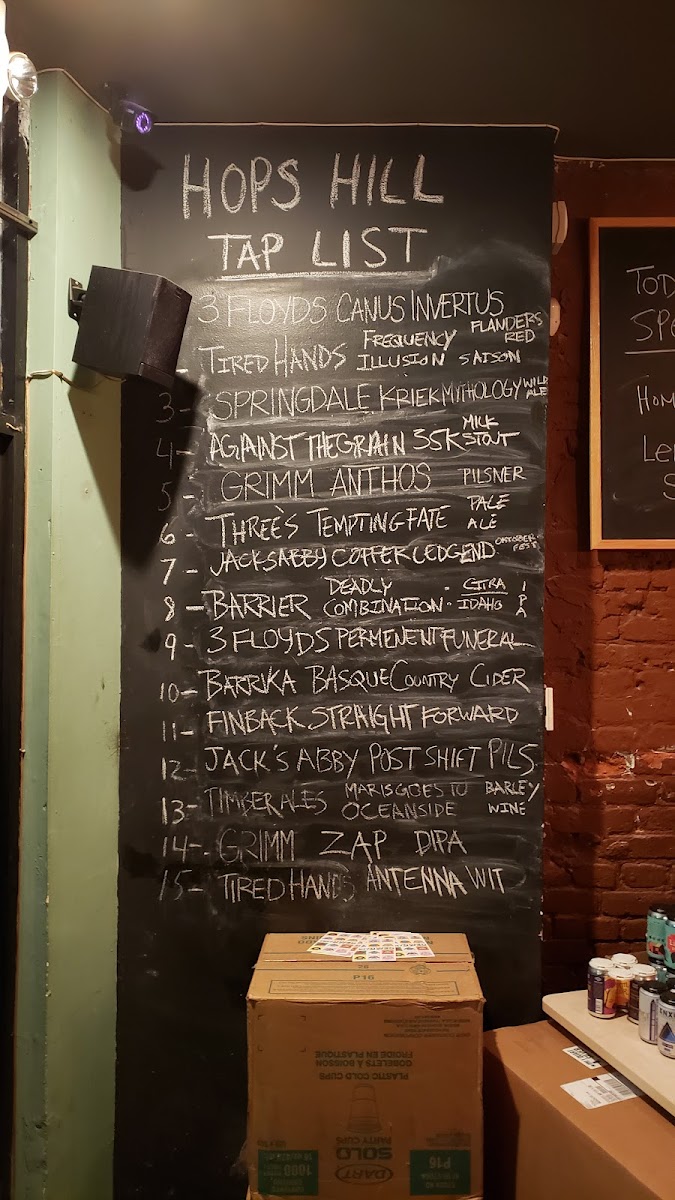 HOPS HILL
TAP LIST
3 FLOYDS CANUS INVERTUS FLANDERS RED
- TIRED HANDS FREQUENCY ILLUSION SAISON
3- SPRINGDALE KRIEK MYTHOLOGY WILD ALE
4- AGIAINST THE GRAIN 35K MILK STOUT
5- GRIMM ANTHOS PILSNER
6- THREE'S TEMPTING FATE PALE ALE
7- JACKSABBY COPPER LEDGEND OKTOBER FEST
8- BARRIER DEADLY COMBINATION - CITRA IDAHO IPA
9- 3 FLOYDS PERMENENT FUNERAL
10- BARRIKA BASQUE COUNTRY CIDER
11- FINBACK STRAIGHT FORWARD
12- JACK'S ABBY POST SHIFT PILS
13- TIMBER ALES MARIS GOES TO OCEANSIDE BARLEY WINE
14- GRIMM ZAP DIPA
15- TIRED HANDS ANTENNA WIT
TOD
SPE
HOM
LE
S
28
P16
GOBELETS À BOISSON
FROIDE EN PLASTIQUE
PLASTIC COLD CUPS
DART
SOLO
PARTY CUPS
1000
P16